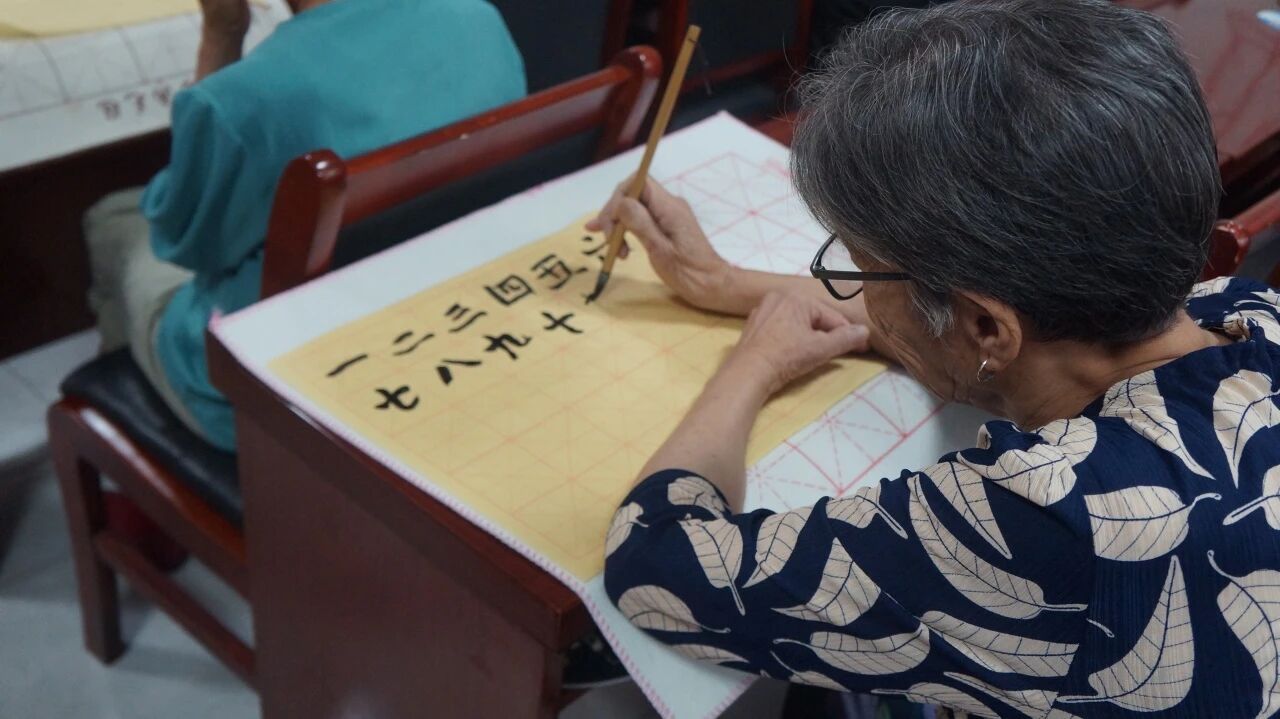 一二三四五六
七八九十